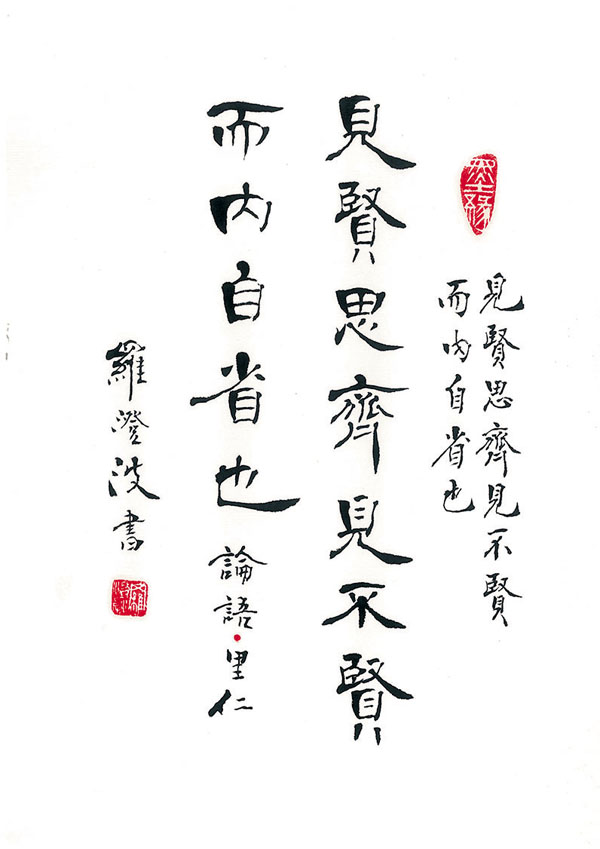 墨緣
見賢思齊見不賢
而內自省也
見賢思齊見不賢
而內自省也 論語·里仁
羅澄波書